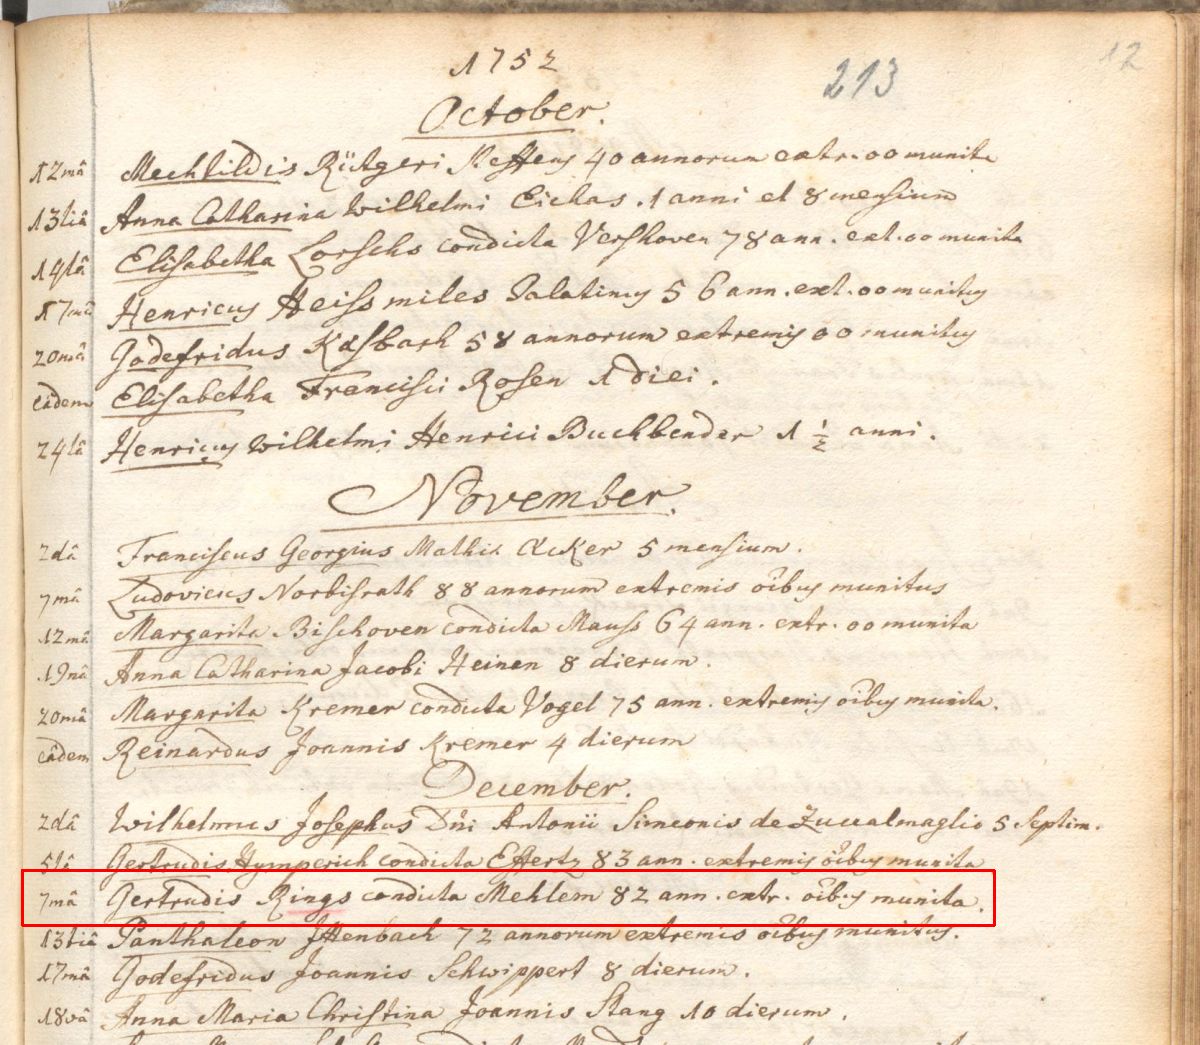 12
1752
213
October.
12mâ Mechtildis Rütgeri Steffens 40 annorum extr. oo munita
13tiâ Anna Catharina Wilhelmi Eichas. 1 anni et 8 mensium
14tâ Elisabetha Lorschs condicta Vershoven 78 ann. ext. oo munita
17mâ Henricus Heiss miles Palatinus 56 ann. ext. oo munitus
20mâ Godefridus Kasbach 58 annorum extremis oo munitus
eâdem Elisabetha Francisci Rosen 1 diei.
24tâ Henricus Wilhelmi Henrici Buchbender 1 1/2 anni.
November.
2dâ Franciscus Georgius Mathiæ Acker 5 mensium.
7mâ Ludovicus Norbisrath 88 annorum extremis oîbus munitus
12mâ Margarita Bischoven condicta Mauss 64 ann. extr. oo munita
19nâ Anna Catharina Jacobi Heinen 8 dierum.
20mâ Margarita Kremer condicta Vogel 75 ann. extremis oîbus munita.
eâdem Reinardus Joannis Kremer 4 dierum
December.
2dâ Wilhelmus Josephus Dñi Antonii Simeonis de Zuccalmaglio 5 Septim.
5tâ Gertrudis Hymperich condicta Effertz 83 ann. extremis oîbus munita
7mâ Gertrudis Rings condicta Mehlem 82 ann. extr. oîb.y munita.
13tiâ Panthaleon Ittenbach 72 annorum extremis oîbus munitus.
17mâ Godefridus Joannis Schwippert 8 dierum.
18vâ Anna Maria Christina Joannis Stang 10 dierum.